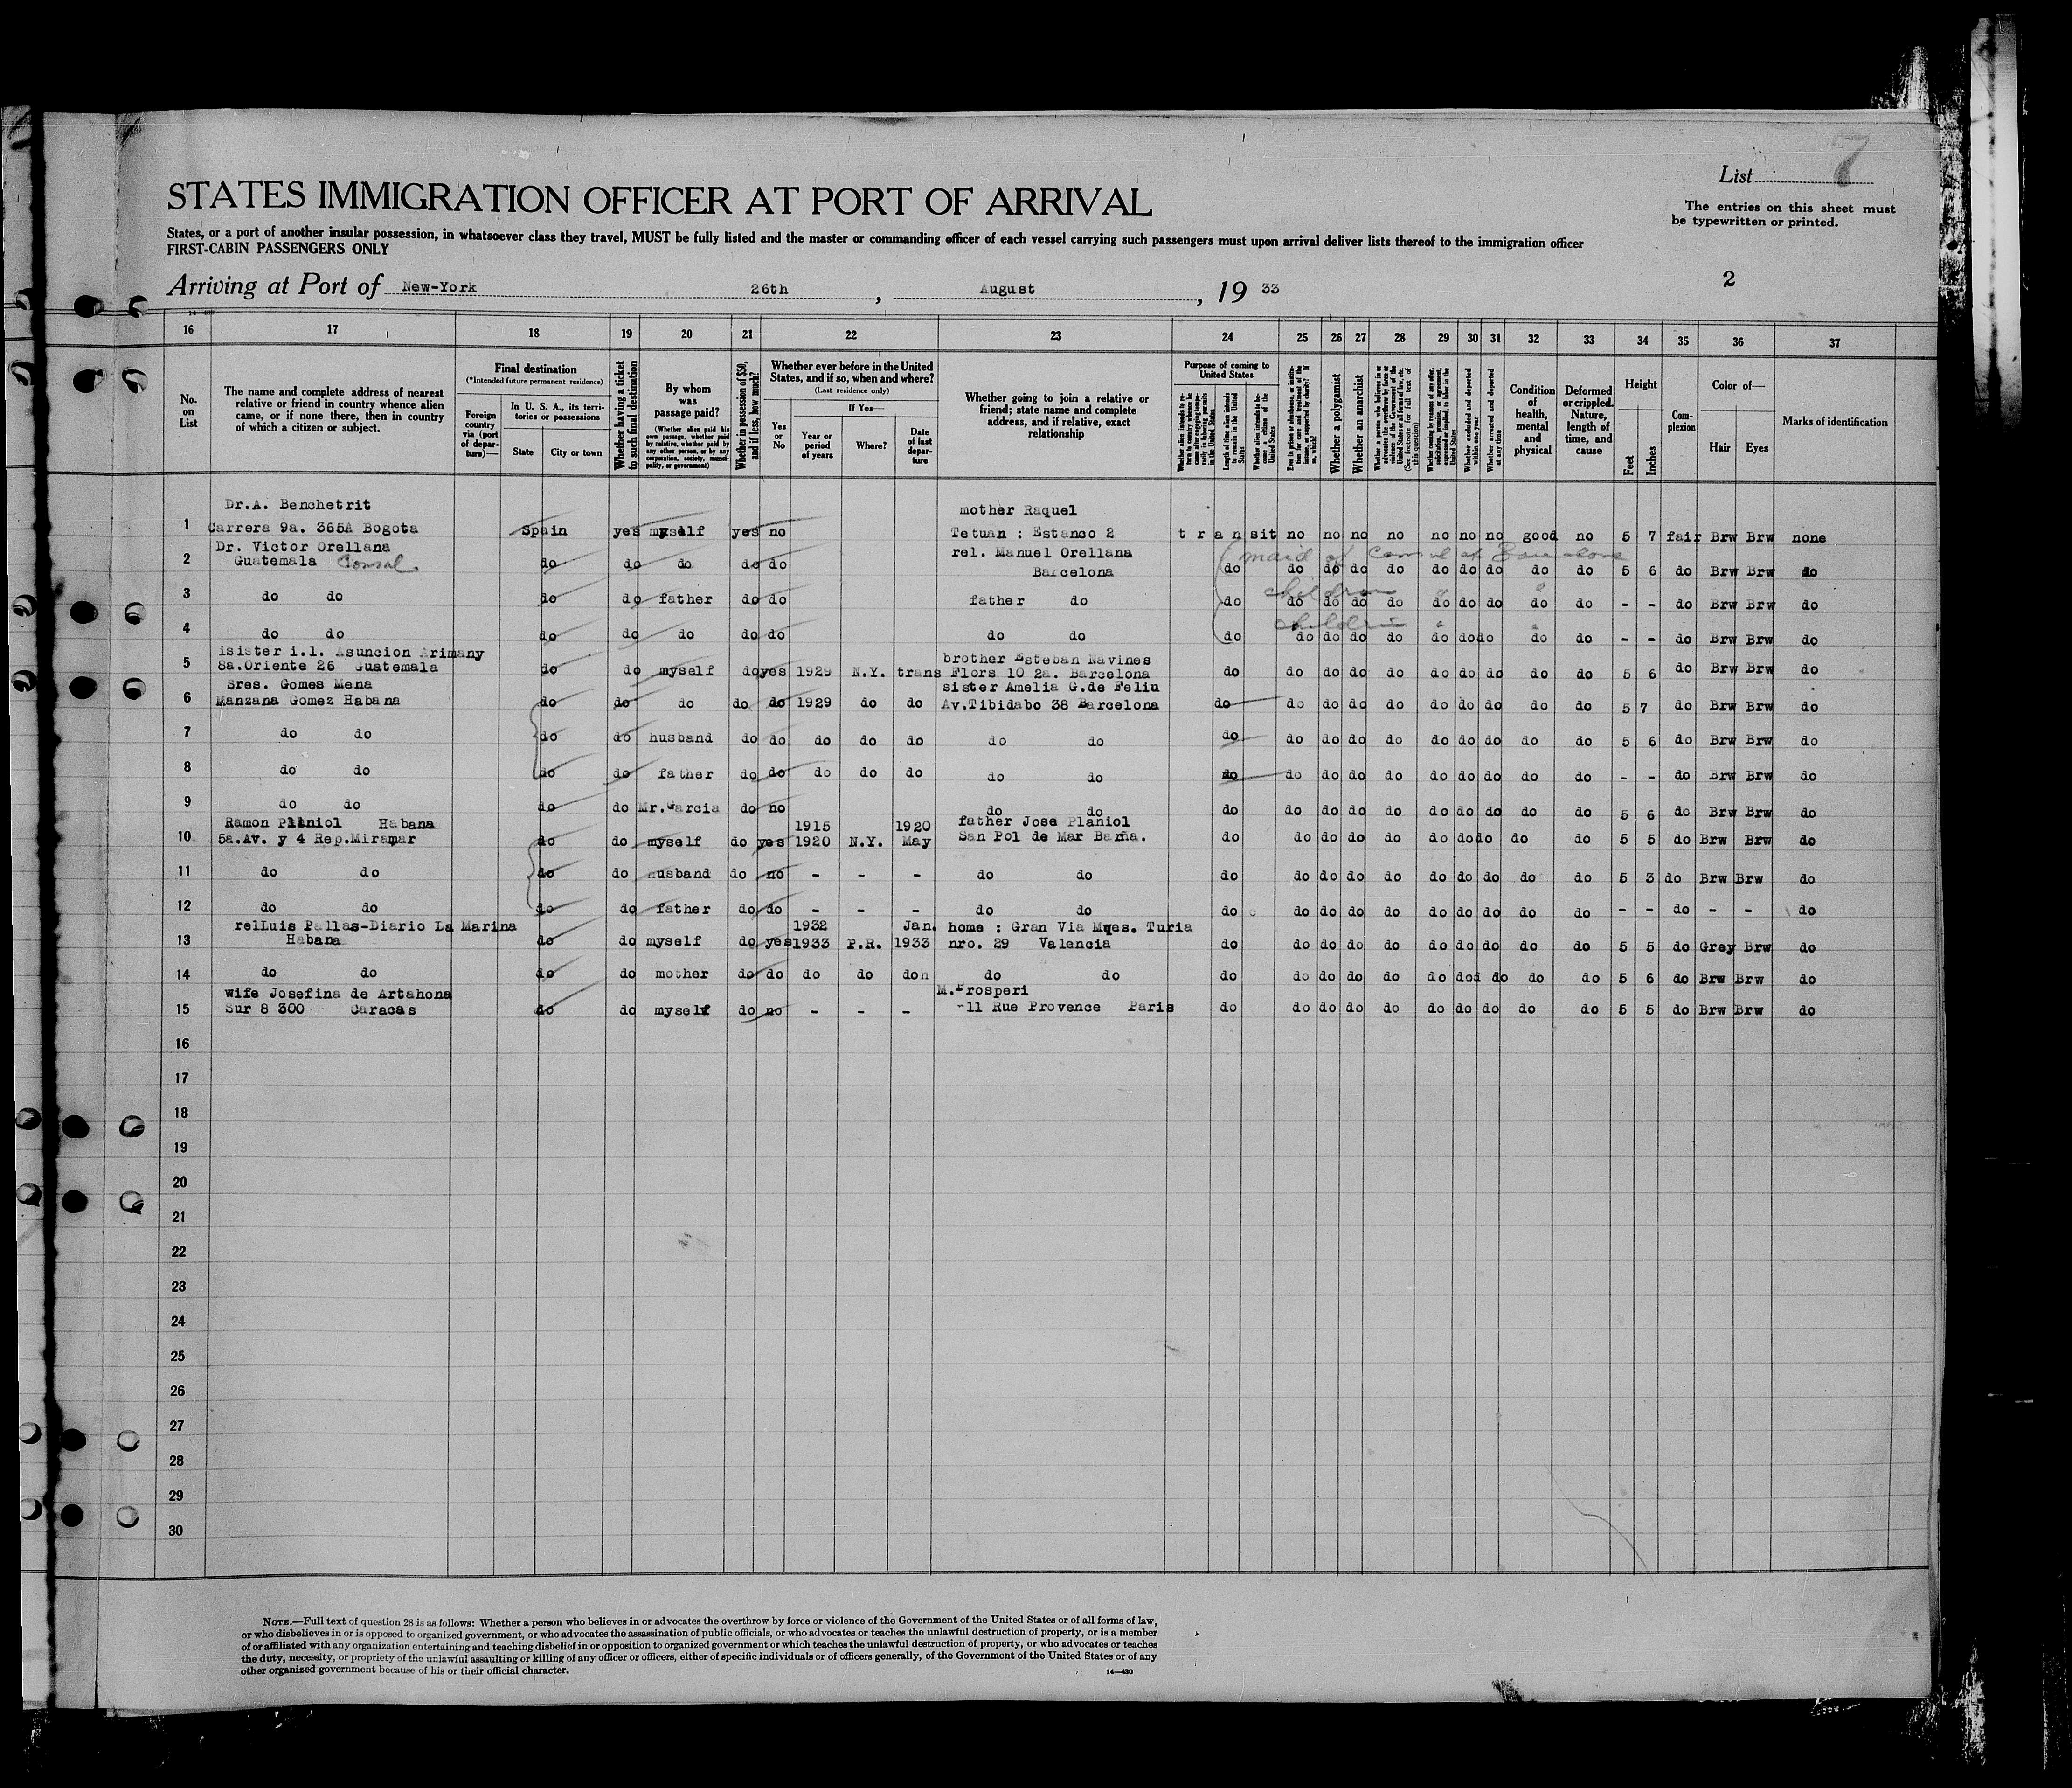 7
List
The entries on this sheet must
be typewritten or printed.
STATES IMMIGRATION OFFICER AT PORT OF ARRIVAL
States, or a port of another insular possession, in whatsoever class they travel, MUST be fully listed and the master or commanding officer of each vessel carrying such passengers must upon arrival deliver lists thereof to the immigration officer
FIRST-CABIN PASSENGERS ONLY
2
Arriving at Port of New-York 26th , August , 19 33
16 17 18 19 20 21 22 23 24 25 26 27 28 29 30 31 32 33 34 35 36 37
No. on List
The name and complete address of nearest
relative or friend in country whence alien
came, or if none there, then in country
of which a citizen or subject.
Final destination
(*Intended future permanent residence)
Foreign country via (port of departure)—
In U. S. A., its territories or possessions
State City or town
Whether having a ticket to such final destination
By whom was passage paid?
(Whether alien paid his own passage, whether paid by relative, whether paid by any other person, or by any corporation, society, municipality, or government)
Whether in possession of $50, and if less, how much?
Whether ever before in the United
States, and if so, when and where?
(Last residence only)
Yes or No
If Yes—
Year or period of years
Where?
Date of last departure
Whether going to join a relative or
friend; state name and complete
address, and if relative, exact
relationship
Purpose of coming to United States
Length of time alien intends to remain in the United States
Whether alien intends to become a citizen of the United States
Whether a polygamist
Whether an anarchist
Whether excluded and deported within one year
Whether arrested and deported at any time
Condition of health, mental and physical
Deformed or crippled. Nature, length of time, and cause
Height
Feet Inches
Complexion
Color of—
Hair Eyes
Marks of identification
Dr.A. Benchetrit mother Raquel
1 Carrera 9a. 365A Bogota Spain yes myself yes no Tetuan : Estanco 2 transit no no no no no no no good no 5 7 fair Brw Brw none
Dr. Victor Orellana rel. Manuel Orellana maid of Consul at Barcelona
2 Guatemala Consul do do do do do Barcelona do do do do do do do do do do 5 6 do Brw Brw do
children
3 do do do do father do do father do do do do do do do do do do do - - do Brw Brw do
children
4 do do do do do do do do do do do do do do do do do do do - - do Brw Brw do
isister i.l. Asuncion Arimany brother Esteban Navines
5 8a.Oriente 26 Guatemala do do myself do yes 1929 N.Y. trans Flors 10 2a. Barcelona do do do do do do do do do do 5 6 do Brw Brw do
Sres. Gomes Mena sister Amelia G.de Feliu
6 Manzana Gomez Habana do do do do do 1929 do do Av.Tibidabo 38 Barcelona do do do do do do do do do do 5 7 do Brw Brw do
7 do do do do husband do do do do do do do do do do do do do do do do do 5 6 do Brw Brw do
8 do do do do father do do do do do do do do do do do do do do do do do - - do Brw Brw do
9 do do do do Mr.Garcia do no do do do do do do do do do do do do 5 6 do Brw Brw do
Ramon Planiol Habana 1915 1920 father Jose Planiol
10 5a.Av. y 4 Rep.Miramar do do myself do yes 1920 N.Y. May San Pol de Mar Barna. do do do do do do do do do do 5 5 do Brw Brw do
11 do do do do husband do no - - - do do do do do do do do do do do do 5 3 do Brw Brw do
12 do do do do father do do - - - do do do do do do do do do do do do - - do - - do
relLuis Pallas-Diario La Marina 1932 Jan. home : Gran Via Mqes. Turia
13 Habana do do myself do yes 1933 P.R. 1933 nro. 29 Valencia do do do do do do do do do do 5 5 do Grey Brw do
14 do do do do mother do do do do don do do do do do do do do do do do do 5 6 do Brw Brw do
wife Josefina de Artahona M.Prosperi
15 Sur 8 300 Caracas do do myself do no - - - -11 Rue Provence Paris do do do do do do do do do do 5 5 do Brw Brw do
16
17
18
19
20
21
22
23
24
25
26
27
28
29
30
NOTE.—Full text of question 28 is as follows: Whether a person who believes in or advocates the overthrow by force or violence of the Government of the United States or of all forms of law,
or who disbelieves in or is opposed to organized government, or who advocates the assassination of public officials, or who advocates or teaches the unlawful destruction of property, or is a member
of or affiliated with any organization entertaining and teaching disbelief in or opposition to organized government or which teaches the unlawful destruction of property, or who advocates or teaches
the duty, necessity, or propriety of the unlawful assaulting or killing of any officer or officers, either of specific individuals or of officers generally, of the Government of the United States or of any
other organized government because of his or their official character.
14—430